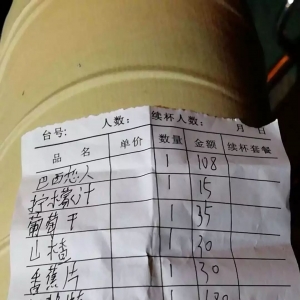 台号: 人数: 续杯人数: 月 日
品 名 单价 数量 金额 续杯套餐
巴西恋人 1 108
柠檬汁 1 15
葡萄干 1 35
山楂 1 30
香蕉片 1 30